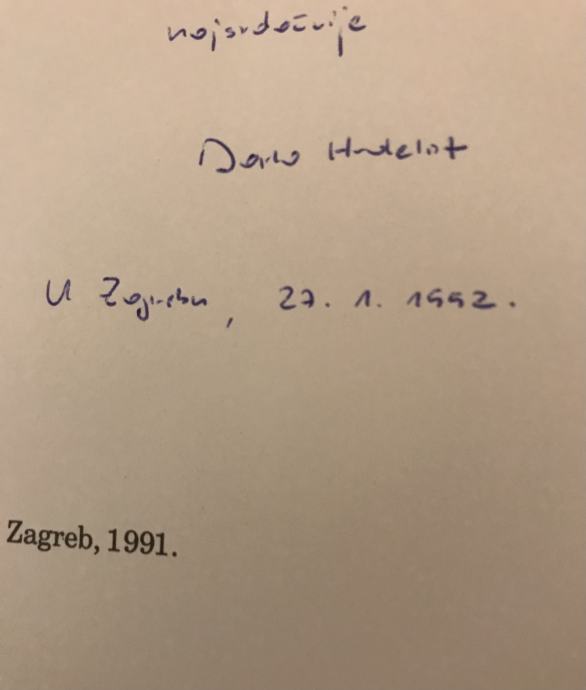 najsrdačnije
Dario Hudelist
U Zagrebu, 27. 1. 1992.
Zagreb, 1991.